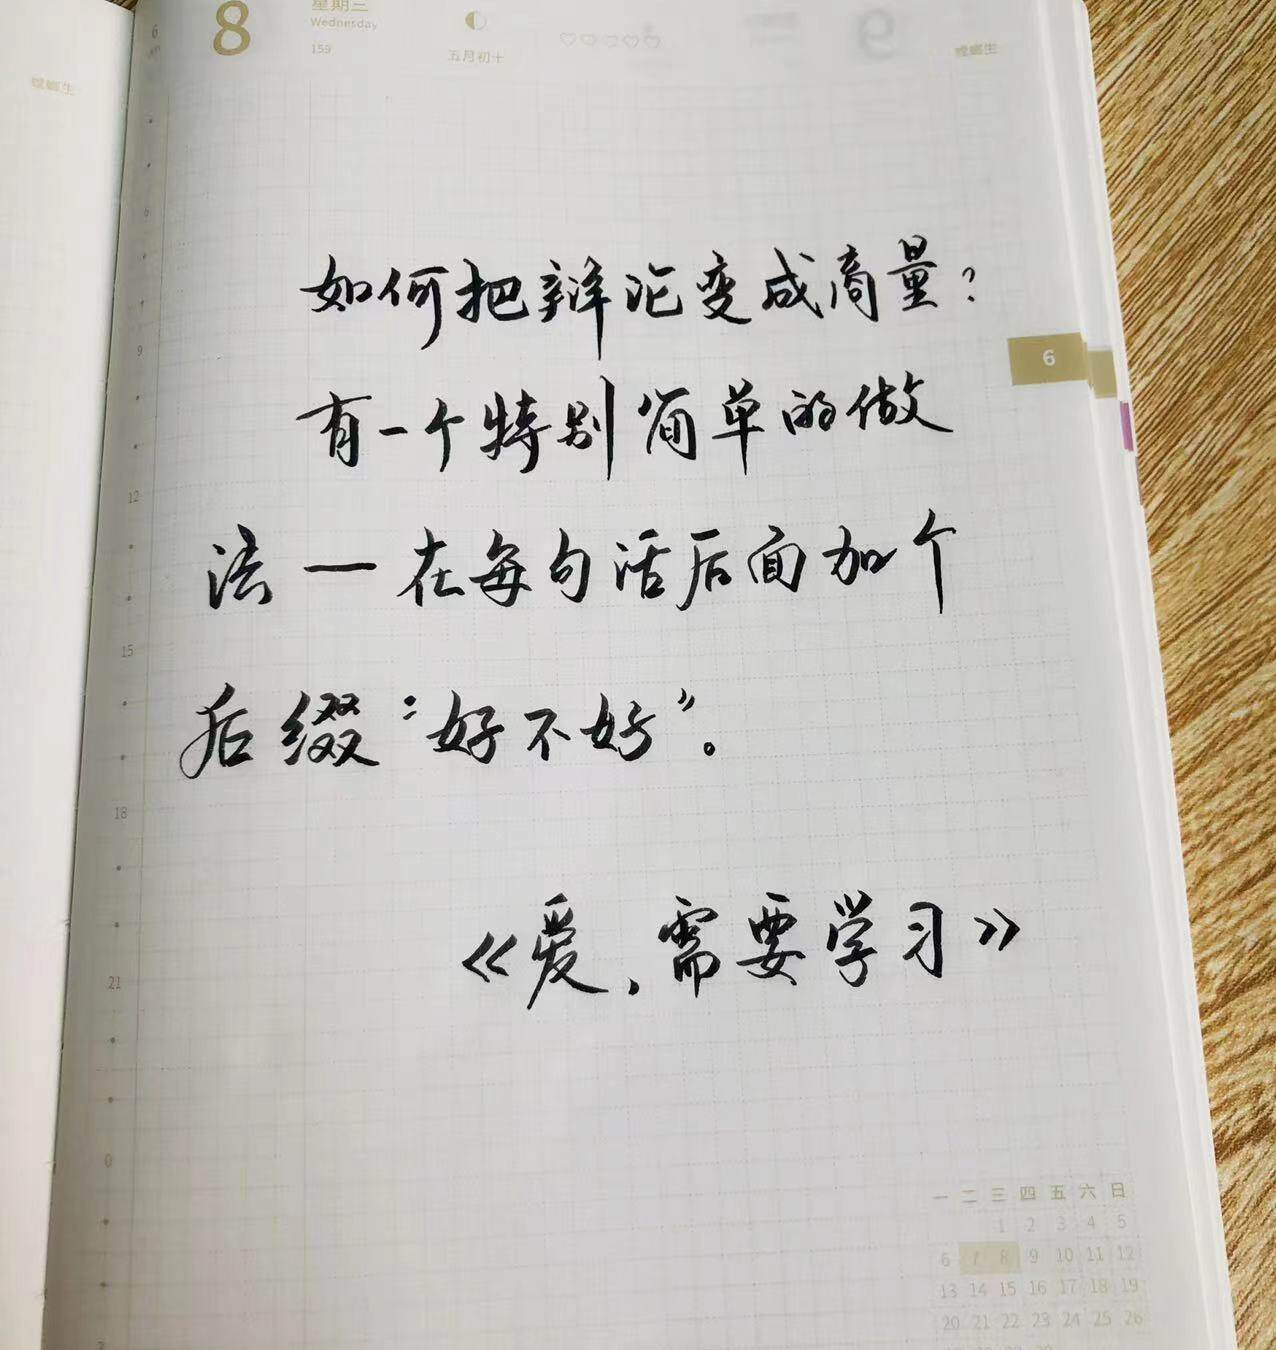 8
星期三
Wednesday
159
五月初十
螳螂生
螳螂生
6
如何把辩论变成商量?
有一个特别简单的做
法一在每句话后面加个
后缀“好不好”。
《爱、需要学习》
6
9
12
15
18
21
0
一 二 三 四 五 六 日
1 2 3 4 5
6 7 8 9 10 11 12
13 14 15 16 17 18 19
20 21 22 23 24 25 26